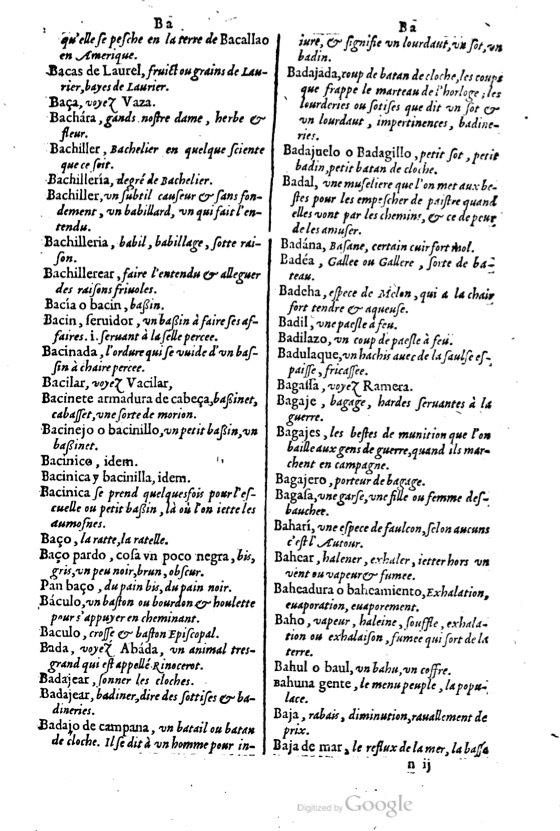 Ba
qu'elle se pesche en la terre de Bacallao
en Amerique.
Bacas de Laurel, fruict ou grains de Lau-
rier, bayes de Laurier.
Baça, voyez Vaza.
Bachára, gands nostre dame, herbe &
fleur.
Bachiller, Bachelier en quelque sciente
que ce soit.
Bachillería, degré de Bachelier.
Bachiller, vn subtil causeur & sans fon-
dement, vn babillard, vn qui fait l'en-
tendu.
Bachilleria, babil, babillage, sotte rai-
son.
Bachillerear, faire l'entendu & alleguer
des raisons friuoles.
Bacía o bacin, baßin.
Bacin, seruidor, vn baßin à faire ses af-
faires. i. seruant à la selle percee.
Bacinada, l'ordure qui se vuide d'vn bas-
sin à chaire percee.
Bacilar, voyez Vacilar,
Bacinete armadura de cabeça, baßinet,
cabasset, vne sorte de morion.
Bacinejo o bacinillo, vn petit baßin, vn
baßinet.
Bacinico, idem.
Bacinica y bacinilla, idem.
Bacinica se prend quelquesfois pour l'es-
cuelle ou petit baßin, là où l'on iette les
aumosnes.
Baço, la ratte, la ratelle.
Baço pardo, cosa vn poco negra, bis,
gris, vn peu noir, brun, obscur.
Pan baço, du pain bis, du pain noir.
Báculo, vn baston ou bourdon & houlette
pour s'appuyer en cheminant.
Baculo, crosse & baston Episcopal.
Bada, voyez Abáda, vn animal tres-
grand qui est appellé Rinocerot.
Badajear, sonner les cloches.
Badajear, badiner, dire des sottises & ba-
dineries.
Badajo de campana, vn batail ou batan
de cloche. Il se dit à vn homme pour in-
Ba
iure, & signifie vn lourdaut, vn sot, vn
badin.
Badajada, coup de batan de cloche, les coups
que frappe le marteau de l'horloge; les
lourderies ou sotises que dit vn sot &
vn lourdaut, impertinences, badine-
ries.
Badajuelo o Badagillo, petit sot, petit
badin, petit batan de cloche.
Badal, vne museliere que l'on met aux be-
stes pour les empescher de paistre quand
elles vont par les chemins, & ce de peur
de les amuser.
Badána, Basane, certain cuir fort mol.
Badéa, Gallee ou Gallere, sorte de ba-
teau.
Badeha, espece de Melon, qui a la chair
fort tendre & aqueuse.
Badil, vne paesle à feu.
Badilazo, vn coup de paesle à feu.
Badulaque, vn hachis auec de la saulse es-
paisse, fricassee.
Bagassa, voyez Ramera.
Bagaje, bagage, hardes seruantes à la
guerre.
Bagajes, les bestes de munition que l'on
baille aux gens de guerre, quand ils mar-
chent en campagne.
Bagajero, porteur de bagage.
Bagasa, vne garse, vne fille ou femme des-
bauchee.
Baharí, vne espece de faulcon, selon aucuns
c'est l'Autour.
Bahear, halener, exhaler, ietter hors vn
vent ou vapeur & fumee.
Baheadura o baheamiento, Exhalation,
euaporation, euaporement.
Baho, vapeur, haleine, souffle, exhala-
tion ou exhalaison, fumee qui sort de la
terre.
Bahul o baul, vn bahu, vn coffre.
Bahuna gente, le menu peuple, la popu-
lace.
Baja, rabais, diminution, rauallement de
prix.
Baja de mar, le reflux de la mer, la bassa
n ij
Digitized by Google